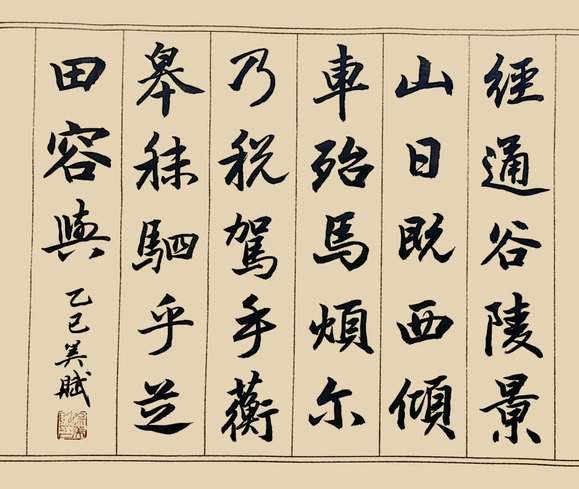 經通谷陵景
山日既西傾
車殆馬煩尔
乃税駕乎蘅
皋秣駟乎芝
田容與
乙巳 賦